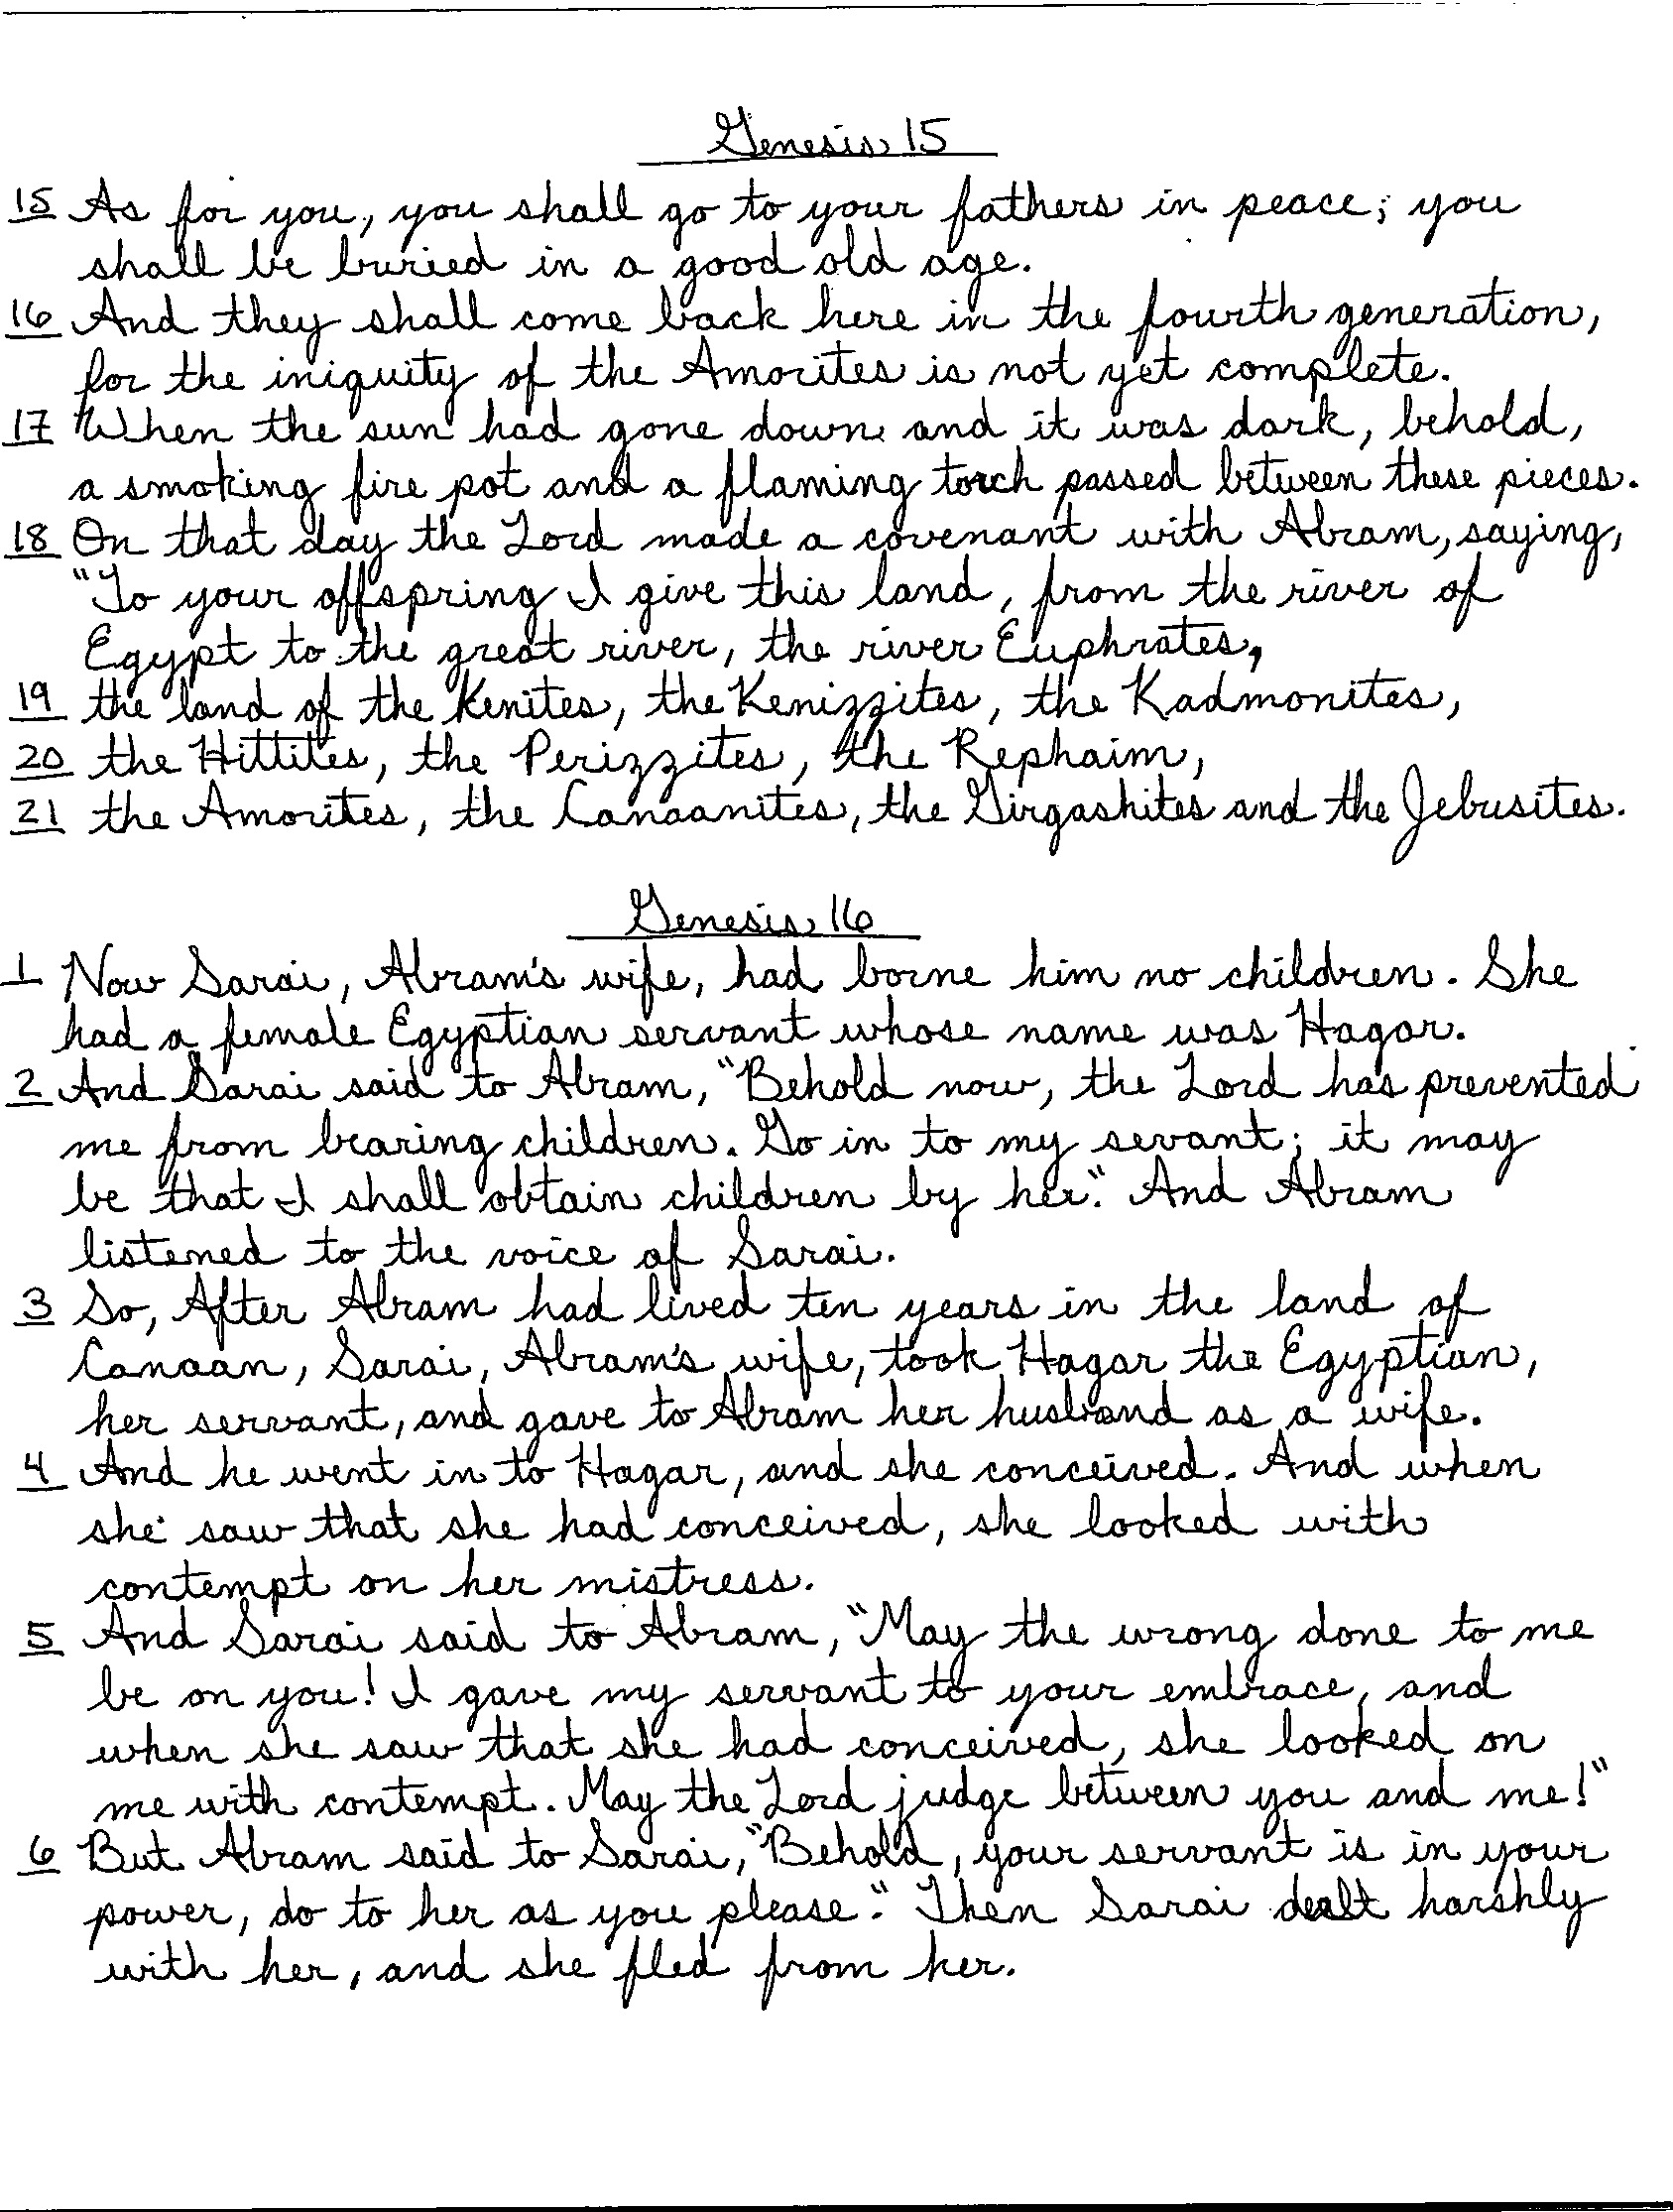 Genesis 15
15 As for you, you shall go to your fathers in peace; you
shall be buried in a good old age.
16 And they shall come back here in the fourth generation,
for the iniquity of the Amorites is not yet complete.
17 "When the sun had gone down and it was dark, behold,
a smoking fire pot and a flaming torch passed between these pieces.
18 On that day the Lord made a covenant with Abram, saying,
"To your offspring I give this land, from the river of
Egypt to the great river, the river Euphrates,
19 the land of the Kenites, the Kenizzites, the Kadmonites,
20 the Hittites, the Perizzites, the Rephaim,
21 the Amorites, the Canaanites, the Girgashites and the Jebusites.
Genesis 16
1 Now Sarai, Abram's wife, had borne him no children. She
had a female Egyptian servant whose name was Hagar.
2 And Sarai said to Abram, "Behold now, the Lord has prevented
me from bearing children. Go in to my sevant; it may
be that I shall obtain children by her." And Abram
listened to the voice of Sarai.
3 So, After Abram had lived ten years in the land of
Canaan, Sarai, Abram's wife, took Hagar the Egyptian,
her servant, and gave to Abram her husband as a wife.
4 And he went in to Hagar, and she conceived. And when
she saw that she had conceived, she looked with
contempt on her mistress.
5 And Sarai said to Abram, "May the wrong done to me
be on you! I gave my servant to your embrace, and
when she saw that she had conceived, she looked on
me with contempt. May the Lord judge between you and me!"
6 But Abram said to Sarai, "Behold, your servant is in your
power, do to her as you please." Then Sarai dealt harshly
with her, and she fled from her.